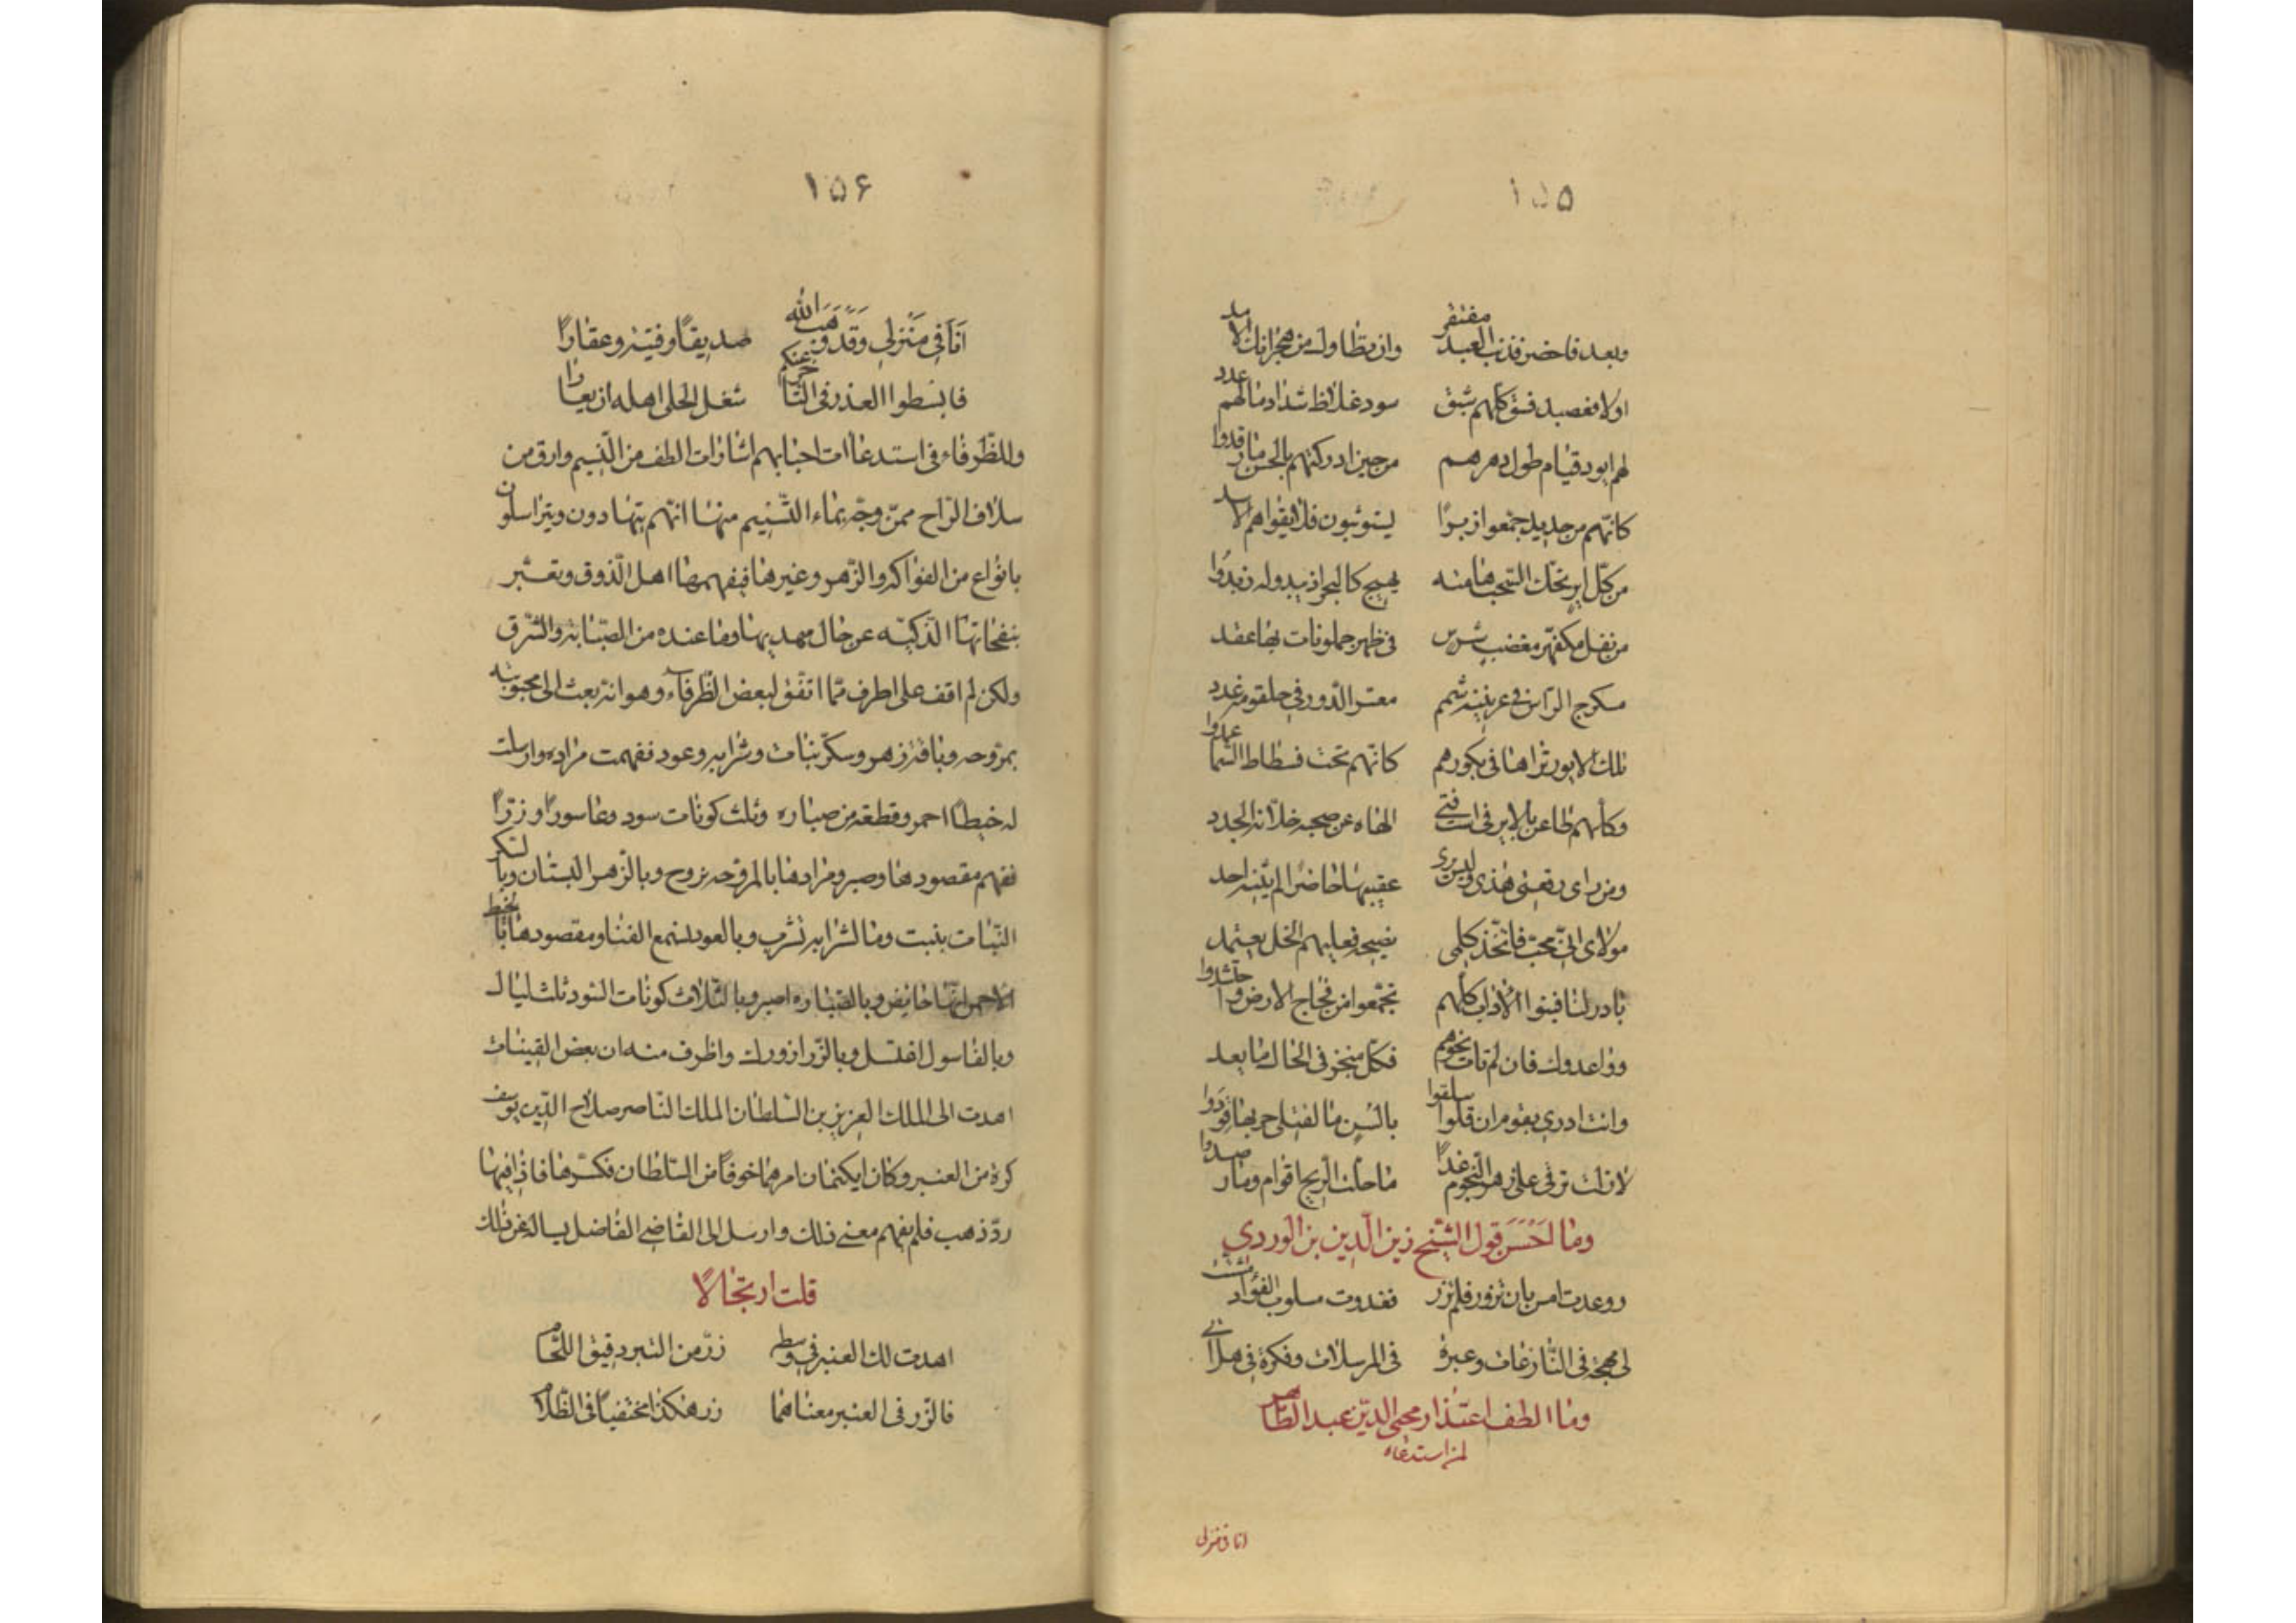 ١٥٥
وبعد فاحضر فذنب العبد مغتفر وان تطاول من هجرانك الامد
اولا فعصبل فسق كلهم شبق سود غلاظ شداد مالهم عدد
لهم ايور قيام طول دهرهم من حين ادركتهم بالحسن ما رقدوا
كانهم من حديد جمعوا زبرا ليتوثبون فلا يقواهم الاسد
من كل اير تخك السحب هامته يهيج كالبحر اذ يبدوله زبد
من نغل مكفهر مغضب شرس فى ظهر حملونات بها عقد
مكرج الراس فى عرنينه شمم معتر الدور فى حلقومه غدد
تلك الايور تراها فى بكورهم كانهم تحت فسطاط السما عمدوا
وكلهم طاعن بالاير فى است فتى الهاه عن صحبه خلانه الجدد
ومن راى رقعتى هذى وليس يرى عقيبها حاضرا لم يثنه احد
مولاى انى محب فاتخذ كلمى نصيحة فعليهم الخل يعتمد
بادر لنا فبنوا الاداب كلهم تجمعوا من فجاج الارض واحتشدوا
وواعدوك فان لم تات نحوهم فكل منجز فى الحال ما يعد
وانت ادرى بقوم ان قلوا سلقوا بالسن ما لقتلى حربها قود
لازلت ترقى على زهر النجوم غدا ما حلت الريح اقوام وما رصدوا
وما احسن قول الشيخ زين الدين بن الوردي
روعدت امس بان تزور فلم تزر فغدوت مسلوب الفؤاد اشتت
لى مهجة فى النازعات وعبرة فى المرسلات وفكرة فى هل اتى
وما الطف اعتذار محيى الدين عبد الظاهر
لمن استدعاه
انا فى منزلى
١٥۶
انا فى منزلى وقد وهب الله صديقا وقينة وعقارا
فابسطوا العذر فى التاخر عنكم شغل الحلى اهله ان يعارا
وللظرفاء فى استدعاات احبابهم اشارات الطف من النسيم وارق من
سلاف الراح ممزوجة بماء التسنيم منها انهم يتهادون ويتراسلون
بانواع من الفواكه والزهر وغيرها فيفهمها اهل الذوق وتعبر
بنفحاتها الذكيه عن حال مهديها وما عنده من الصبابة والشرق
ولكن لم اقف على اطرف مما اتفق لبعض الظرفاء وهو انه بعث الى محبوبته
بمروحه وباقة زهر وسكر نبات وشرابه وعود ففهمت مراده وارسلت
له خيطا احمر وقطعة من صباره وثلث كونات سود وغاسورا وزرا
ففهم مقصودها وصبر ومرادها بالمروحه نروح وبالزهر البستان وبالسكر
النبات بنبت وما لشرابه نشرب وبالعود نسمع الغنا ومقصودها بالخيط
الاحمر انها حايض وبالصباره اصبر وبالثلاث كونات السود ثلث ليال
وبالغاسول اغتسل وبالزر ازورك واظرف منه ان بعض القينات
اهدت الى الملك العزيز بن السلطان الملك الناصر صلاح الدين يوسف
كرة من العنبر وكان ايكتمان امرهما خوفا من السلطان فكسرها فاذا فيها
رز ذهب فلم يفهم معنى ذلك وارسل الى القاضى الفاضل يساله عن ذلك
قلت ارتجالا
اهدت لك العنبر فى وسطه زر من التبر دقيق اللحام
فالزر فى العنبر معناهما زر هكذا مختفيا فى الظلام